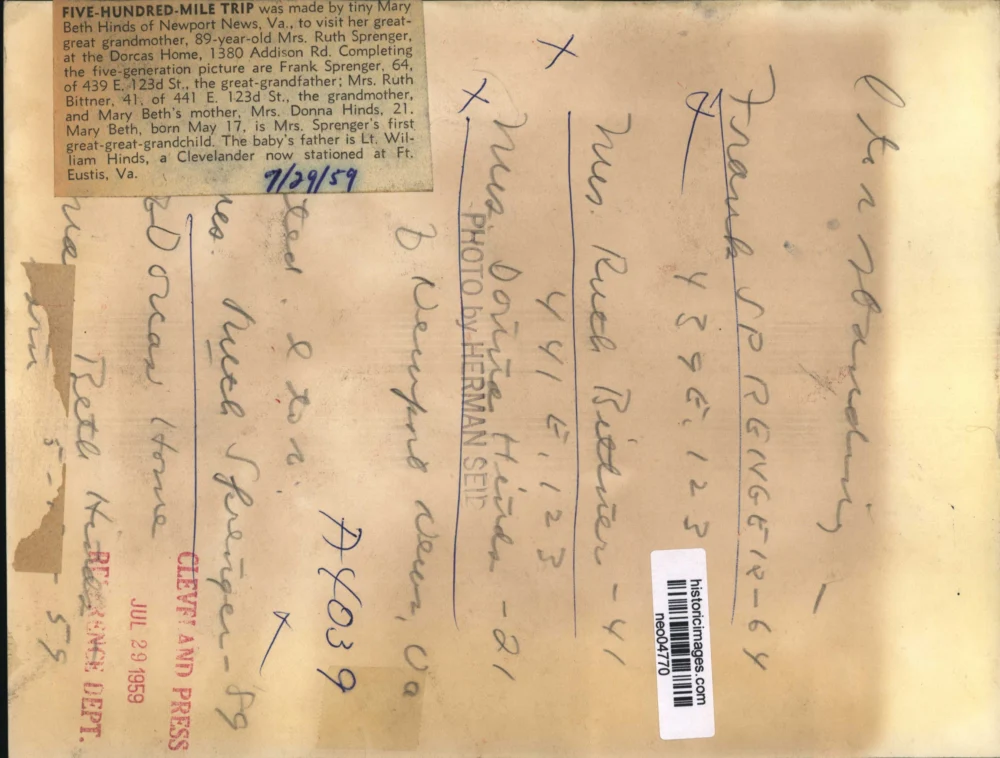 FIVE-HUNDRED-MILE TRIP was made by tiny Mary
Beth Hinds of Newport News, Va., to visit her great-
great grandmother, 89-year-old Mrs. Ruth Sprenger,
at the Dorcas Home, 1380 Addison Rd. Completing
the five-generation picture are Frank Sprenger, 64,
of 439 E. 123d St., the great-grandfather; Mrs. Ruth
Bittner, 41, of 441 E. 123d St., the grandmother,
and Mary Beth's mother, Mrs. Donna Hinds, 21.
Mary Beth, born May 17, is Mrs. Sprenger's first
great-great-grandchild. The baby's father is Lt. Wil-
liam Hinds, a Clevelander now stationed at Ft.
Eustis, Va.
7/29/59
l to r standing -
Frank SPRENGER - 64
439 E. 123
Mrs. Ruth Bittner - 41
441 E. 123
Mrs. Donna Hinds - 21
Newport News, Va
PHOTO by HERMAN SEID
l to r.
Ruth Sprenger - 89
Dorcas Home
Beth Hinds
59
A4039
CLEVELAND PRESS
JUL 29 1959
REFERENCE DEPT.
historicimages.com
neo04770